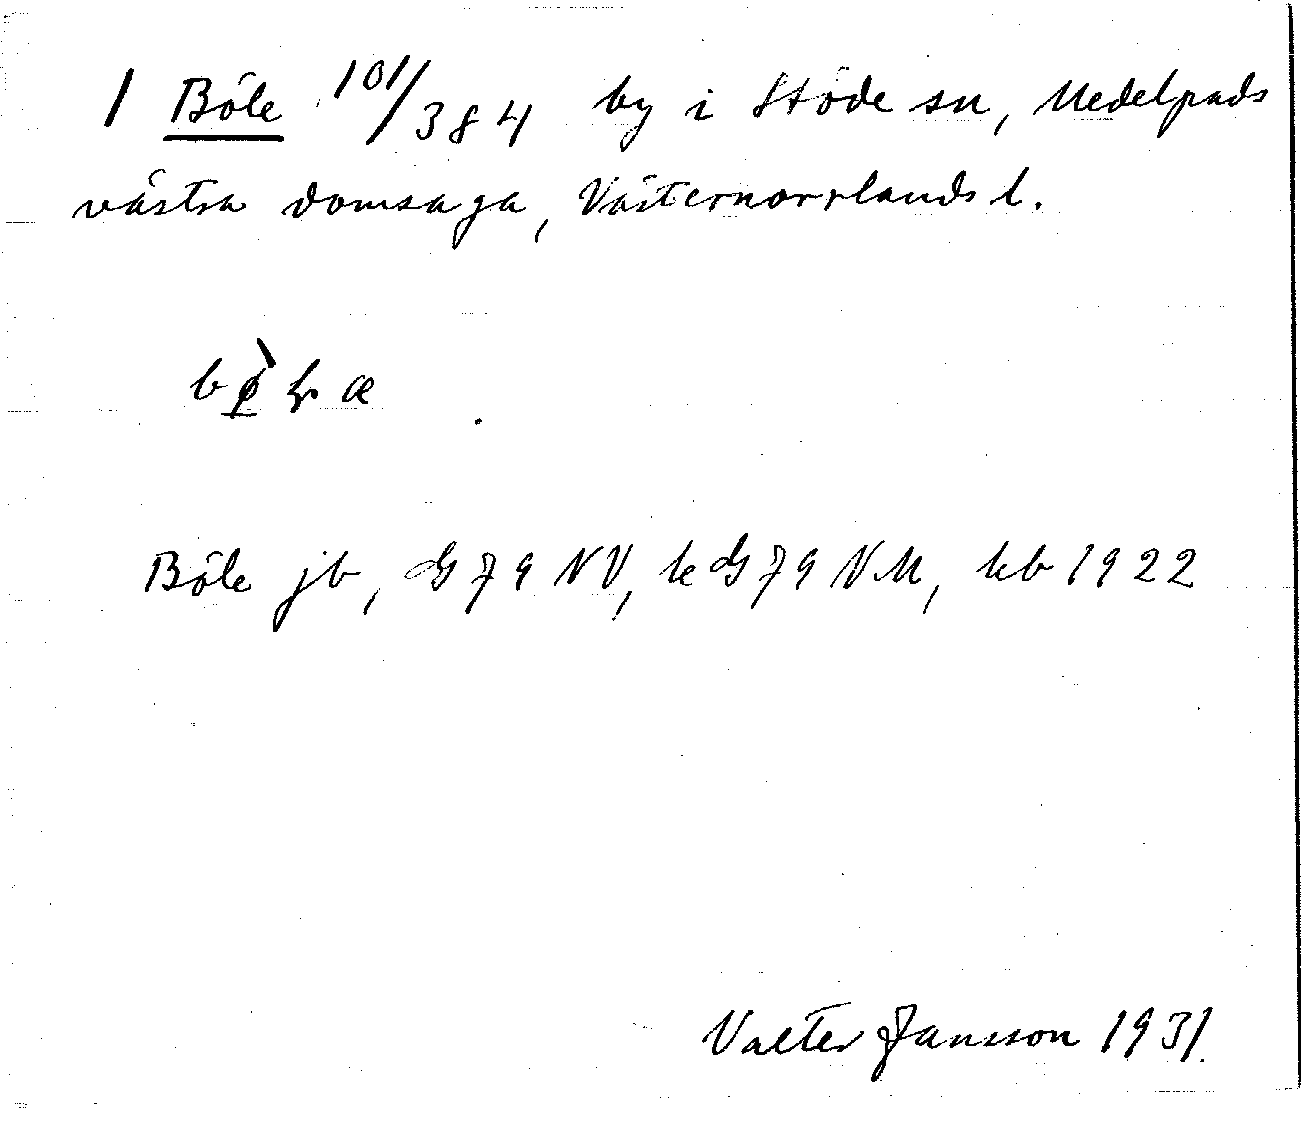 1 Böle 101/384 by i Stöde sn, Medelpads
västra domsaga, Västernorrlands l.
Böle jb, G 79 NV, k G 79 NM, kb 1922
Valter Jansson 1931.